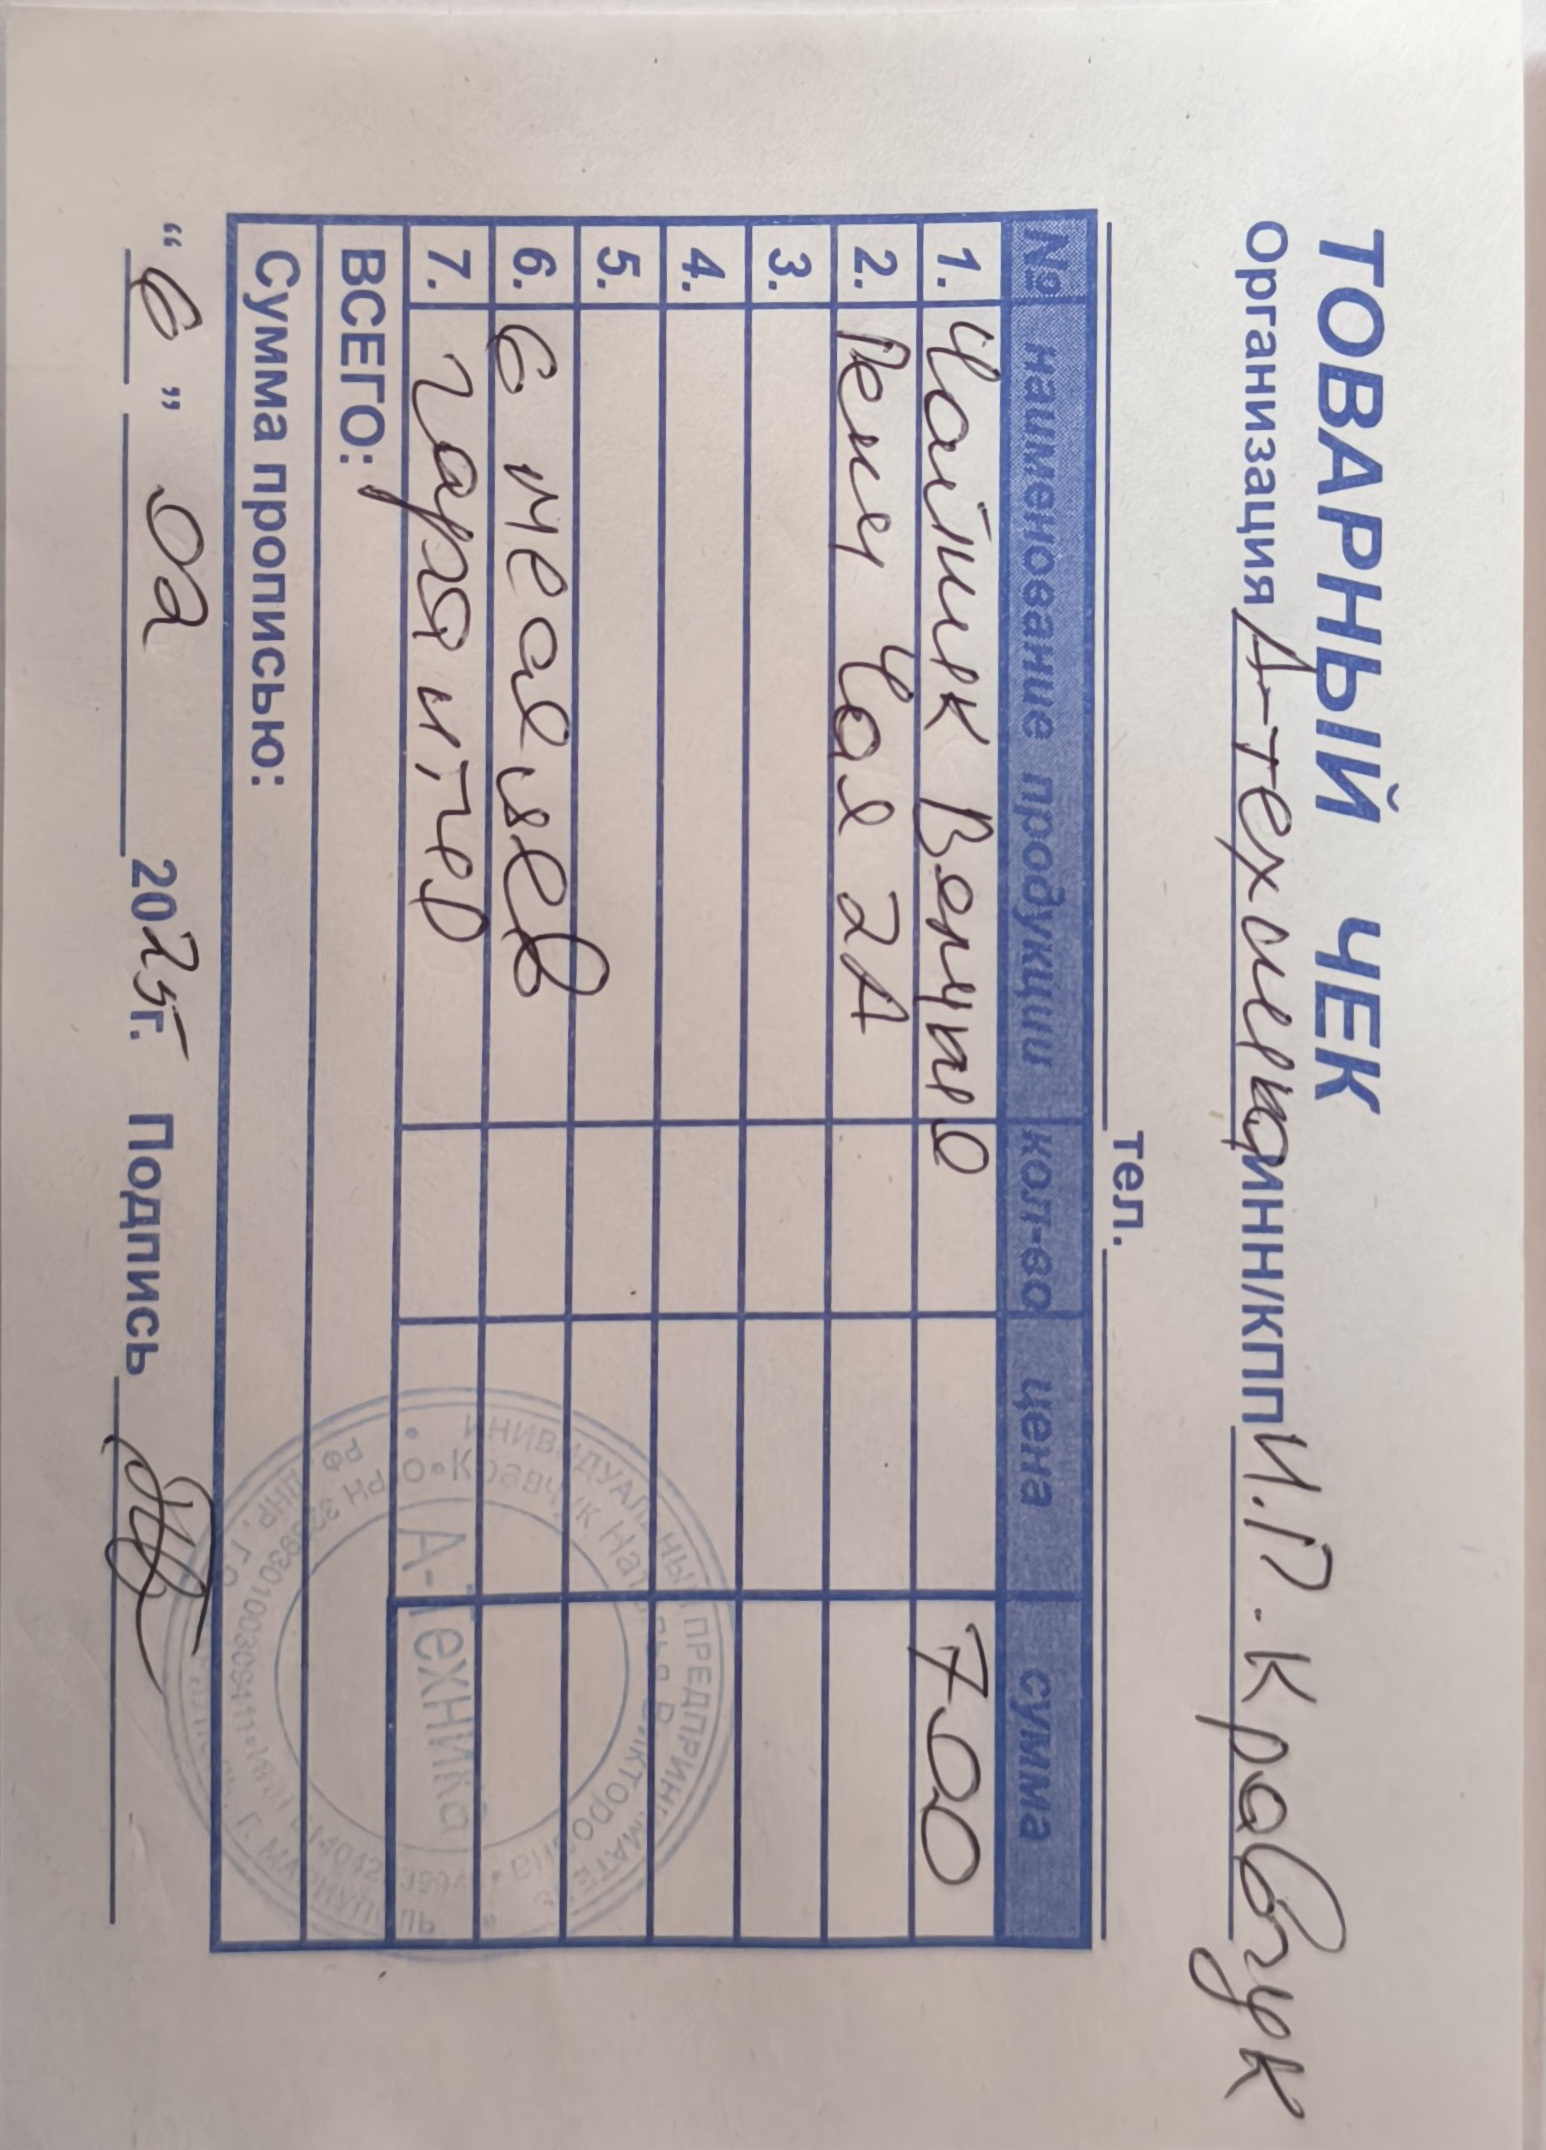 ТОВАРНЫЙ ЧЕК
Организация А-техника ИНН/КПП И.П. Кравчук
тел.
№ наименование продукции кол-во цена сумма
1. Чайник 700
2. 2А
3.
4.
5.
6. 6 месяцев
7. гарантия
ВСЕГО:
Сумма прописью:
"6" 02 2025г. Подпись
ИНИВИДУАЛЬНЫЙ ПРЕДПРИНИМАТЕЛЬ
Кравчук Наталья Викторовна
А-Техника
РФ, ДНР, Г.О. МАРИУПОЛЬ, Г. МАРИУПОЛЬ